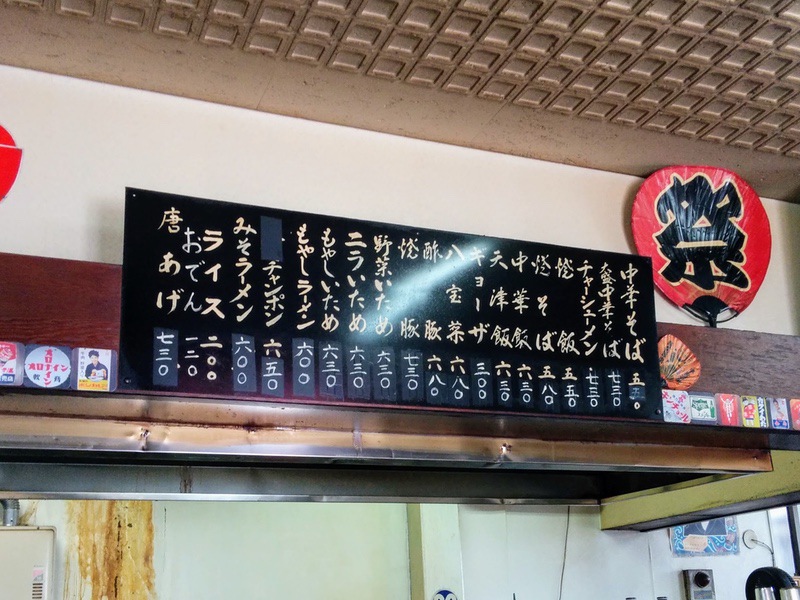 中華そば 五五〇
大盛中華そば 七三〇
チャーシューメン 七三〇
焼飯 五五〇
焼そば 五八〇
中華飯 六三〇
天津飯 六三〇
ギョーザ 三〇〇
八宝菜 六八〇
酢豚 六八〇
焼豚 七三〇
野菜いため 六三〇
ニラいため 六三〇
もやしいため 六三〇
もやしラーメン 六〇〇
チャンポン 六五〇
みそラーメン 六〇〇
ライス 二〇〇
おでん 一二〇
唐あげ 七三〇
祭
オロナイン